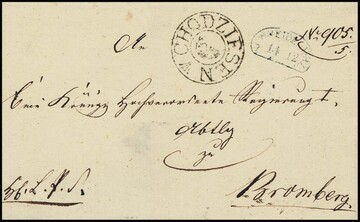 No 905.
5.
An
CHODZIESEN
14 12
Eine Königl Hochverordnete Regierung,
Abtlg
zu
Bromberg.